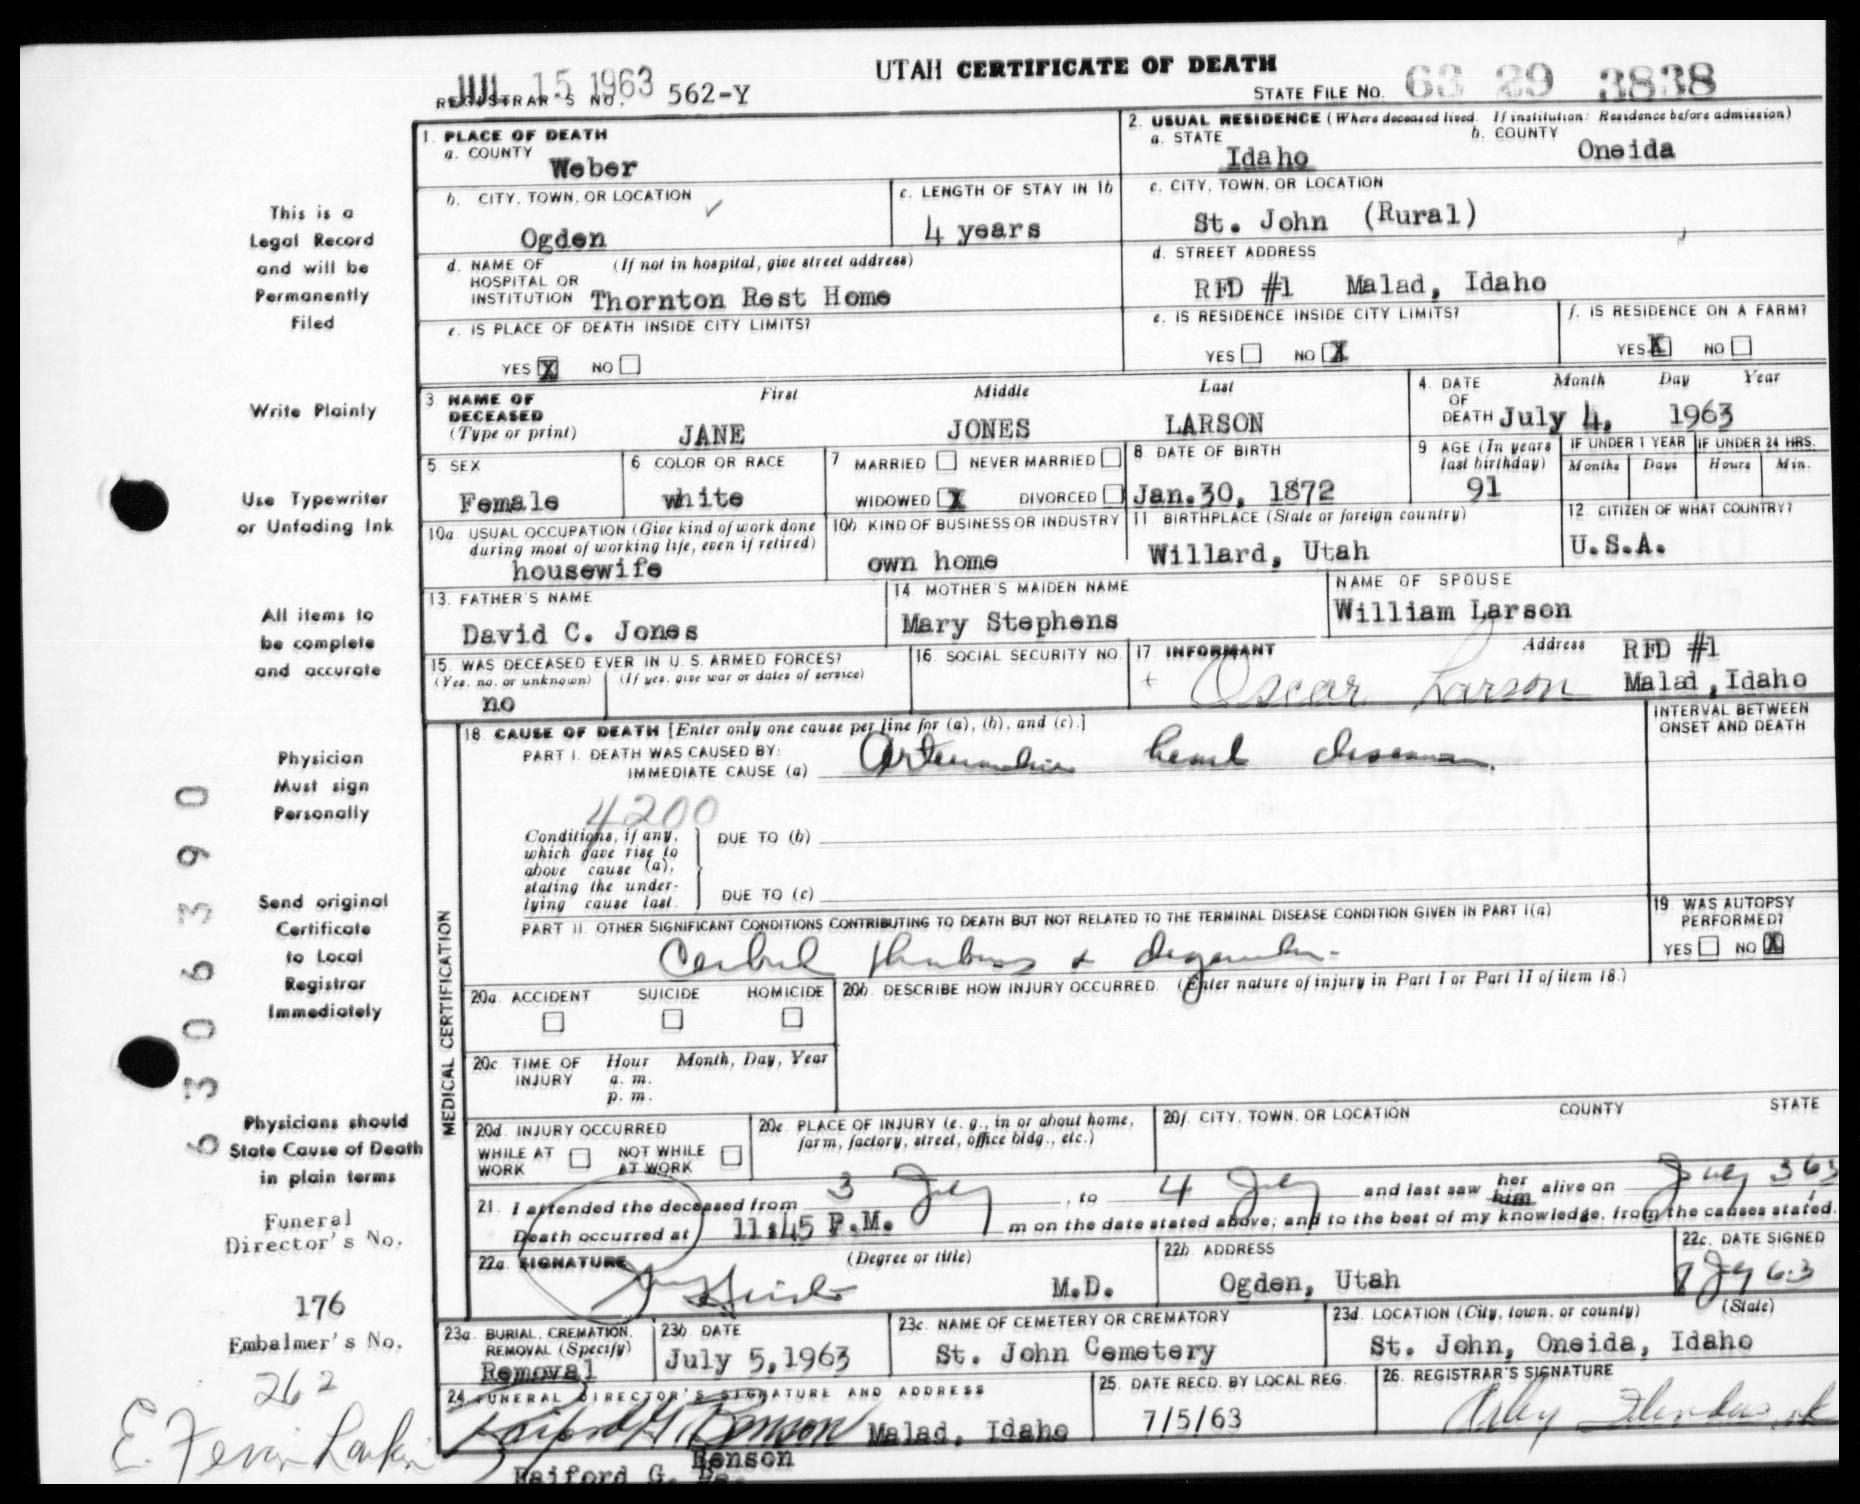 JUL 15 1963
UTAH CERTIFICATE OF DEATH
REGISTRAR'S NO. 562-Y
STATE FILE NO. 63 29 3838
1. PLACE OF DEATH
a. COUNTY
Weber
2. USUAL RESIDENCE (Where deceased lived. If institution: Residence before admission)
a. STATE
Idaho
b. COUNTY
Oneida
b. CITY, TOWN, OR LOCATION
Ogden
c. LENGTH OF STAY IN 1b
4 years
c. CITY, TOWN, OR LOCATION
St. John (Rural)
d. NAME OF HOSPITAL OR INSTITUTION
(If not in hospital, give street address)
Thornton Rest Home
d. STREET ADDRESS
RFD #1 Malad, Idaho
e. IS PLACE OF DEATH INSIDE CITY LIMITS?
YES X NO
e. IS RESIDENCE INSIDE CITY LIMITS?
YES NO X
f. IS RESIDENCE ON A FARM?
YES X NO
3. NAME OF DECEASED
(Type or print)
First Middle Last
JANE JONES LARSON
4. DATE OF DEATH
Month Day Year
July 4, 1963
5. SEX
Female
6 COLOR OR RACE
white
7 MARRIED NEVER MARRIED
WIDOWED X DIVORCED
8. DATE OF BIRTH
Jan.30, 1872
9 AGE (In years last birthday)
91
IF UNDER 1 YEAR
Months Days
IF UNDER 24 HRS.
Hours Min.
10a. USUAL OCCUPATION (Give kind of work done during most of working life, even if retired)
housewife
10b. KIND OF BUSINESS OR INDUSTRY
own home
11. BIRTHPLACE (State or foreign country)
Willard, Utah
12. CITIZEN OF WHAT COUNTRY?
U.S.A.
13. FATHER'S NAME
David C. Jones
14. MOTHER'S MAIDEN NAME
Mary Stephens
NAME OF SPOUSE
William Larson
15. WAS DECEASED EVER IN U. S. ARMED FORCES?
(Yes, no, or unknown)
(If yes, give war or dates of service)
no
16. SOCIAL SECURITY NO.
17. INFORMANT
Oscar Larson
Address
RFD #1
Malad, Idaho
18. CAUSE OF DEATH [Enter only one cause per line for (a), (b), and (c).]
PART I. DEATH WAS CAUSED BY:
IMMEDIATE CAUSE (a)
heart disease
4200
INTERVAL BETWEEN ONSET AND DEATH
Conditions, if any, which gave rise to above cause (a), stating the underlying cause last.
DUE TO (b)
DUE TO (c)
PART II. OTHER SIGNIFICANT CONDITIONS CONTRIBUTING TO DEATH BUT NOT RELATED TO THE TERMINAL DISEASE CONDITION GIVEN IN PART I(a)
19. WAS AUTOPSY PERFORMED?
YES NO X
MEDICAL CERTIFICATION
20a. ACCIDENT SUICIDE HOMICIDE
20b. DESCRIBE HOW INJURY OCCURRED. (Enter nature of injury in Part I or Part II of item 18.)
20c. TIME OF INJURY
Hour Month, Day, Year
a. m.
p. m.
20d. INJURY OCCURRED
WHILE AT WORK NOT WHILE AT WORK
20e. PLACE OF INJURY (e. g., in or about home, farm, factory, street, office bldg., etc.)
20f. CITY, TOWN, OR LOCATION COUNTY STATE
21. I attended the deceased from 3 July, to 4 July and last saw her him alive on July 3, 63
Death occurred at 11:45 P.M. m on the date stated above; and to the best of my knowledge, from the causes stated.
22a. SIGNATURE
(Degree or title)
M.D.
22b. ADDRESS
Ogden, Utah
22c. DATE SIGNED
63
23a. BURIAL, CREMATION, REMOVAL (Specify)
Removal
23b. DATE
July 5, 1963
23c. NAME OF CEMETERY OR CREMATORY
St. John Cemetery
23d. LOCATION (City, town, or county) (State)
St. John, Oneida, Idaho
24. FUNERAL DIRECTOR'S SIGNATURE AND ADDRESS
Raiford G. Benson Malad, Idaho
Benson
Raiford G.
25. DATE RECD. BY LOCAL REG.
7/5/63
26. REGISTRAR'S SIGNATURE
This is a
Legal Record
and will be
Permanently
Filed
Write Plainly
Use Typewriter
or Unfading Ink
All items to
be complete
and accurate
Physician
Must sign
Personally
Send original
Certificate
to Local
Registrar
Immediately
Physicians should
State Cause of Death
in plain terms
Funeral
Director's No.
176
Embalmer's No.
262
E. Larkin
6306390